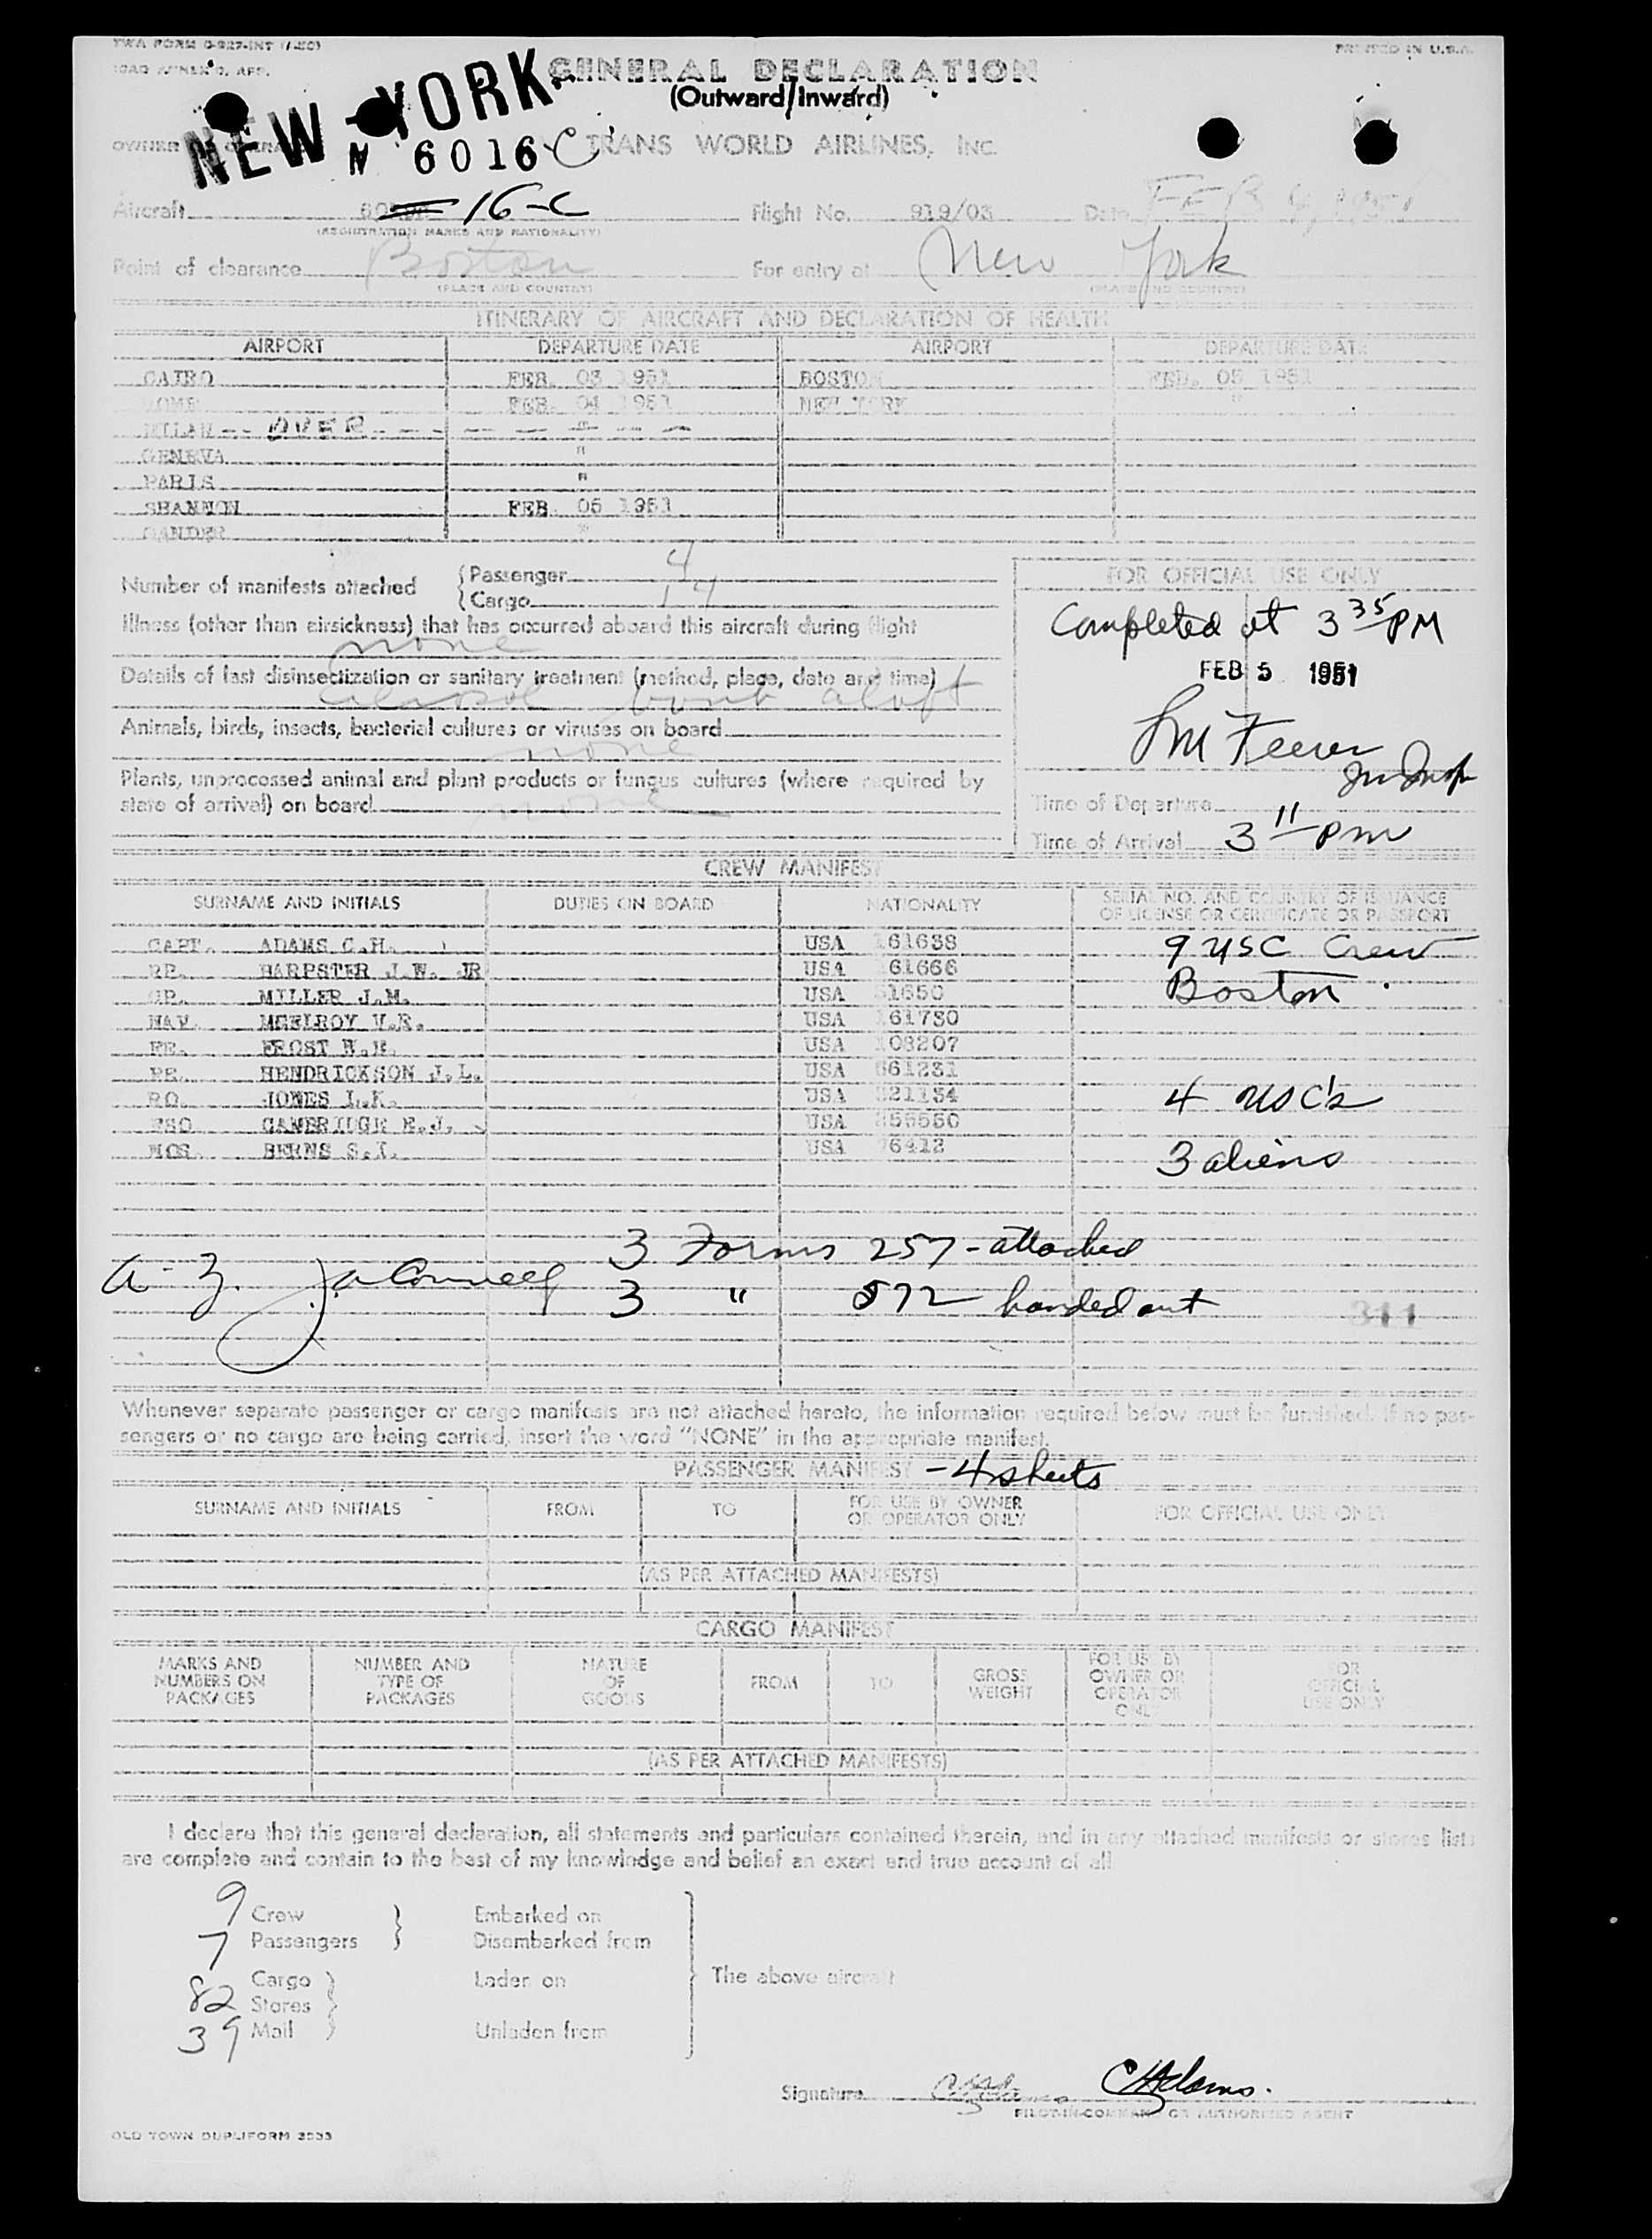 TWA FORM 0-927-INT (1-50)
PRINTED IN U.S.A.
ICAO ANNEX 9, APP.
GENERAL DECLARATION
(Outward/Inward)
NEW YORK
N 6016C
TRANS WORLD AIRLINES, INC.
Aircraft 16-C Flight No. 919/03 Date FEB 4, 1951
(REGISTRATION MARKS AND NATIONALITY)
Point of clearance Boston For entry at New York
(PLACE AND COUNTRY) (PLACE AND COUNTRY)
ITINERARY OF AIRCRAFT AND DECLARATION OF HEALTH
AIRPORT DEPARTURE DATE AIRPORT DEPARTURE DATE
CAIRO FEB. 03 1951 BOSTON FEB. 05 1951
ROME FEB. 04 1951 NEW YORK "
MILAN -- OVER - - - - " - - -
GENEVA "
PARIS "
SHANNON FEB 05 1951
GANDER "
Number of manifests attached { Passenger 4
{ Cargo 14
Illness (other than airsickness) that has occurred aboard this aircraft during flight
none
Details of last disinsectization or sanitary treatment (method, place, date and time)
aerosol bomb aloft
Animals, birds, insects, bacterial cultures or viruses on board
none
Plants, unprocessed animal and plant products or fungus cultures (where required by
state of arrival) on board none
FOR OFFICIAL USE ONLY
Completed at 3 35 PM
FEB 5 1951
Time of Departure
Time of Arrival 3 11 pm
CREW MANIFEST
SURNAME AND INITIALS DUTIES ON BOARD NATIONALITY SERIAL NO. AND COUNTRY OF ISSUANCE
OF LICENSE OR CERTIFICATE OR PASSPORT
CAPT. ADAMS C.H. USA 161638 9 USC Crew
HARPSTER J.W. JR USA 161666 Boston
MILLER J.M. USA
NAV. MCELROY V.R. USA 161730
FROST W.H. USA 108207
HENDRICKSON J.L. USA 661231
RO. JONES L.K. USA 321134 4 USC's
CAMBRIDGE E.J. USA
BERNS S.I. USA 76412 3 aliens
3 Forms 257 - attached
3 " 572 handed out
311
Whenever separate passenger or cargo manifests are not attached hereto, the information required below must be furnished. If no pas-
sengers or no cargo are being carried, insert the word "NONE" in the appropriate manifest.
PASSENGER MANIFEST - 4 sheets
SURNAME AND INITIALS FROM TO FOR USE BY OWNER OR OPERATOR ONLY FOR OFFICIAL USE ONLY
(AS PER ATTACHED MANIFESTS)
CARGO MANIFEST
MARKS AND NUMBERS ON PACKAGES NUMBER AND TYPE OF PACKAGES NATURE OF GOODS FROM TO GROSS WEIGHT FOR USE BY OWNER OR OPERATOR ONLY FOR OFFICIAL USE ONLY
(AS PER ATTACHED MANIFESTS)
I declare that this general declaration, all statements and particulars contained therein, and in any attached manifests or stores lists
are complete and contain to the best of my knowledge and belief an exact and true account of all
9 Crew } Embarked on
7 Passengers } Disembarked from
82 Cargo } Laden on The above aircraft
Stores }
39 Mail } Unladen from
Signature CHAdams.
PILOT-IN-COMMAND OR AUTHORIZED AGENT
OLD TOWN DUPLIFORM 3533